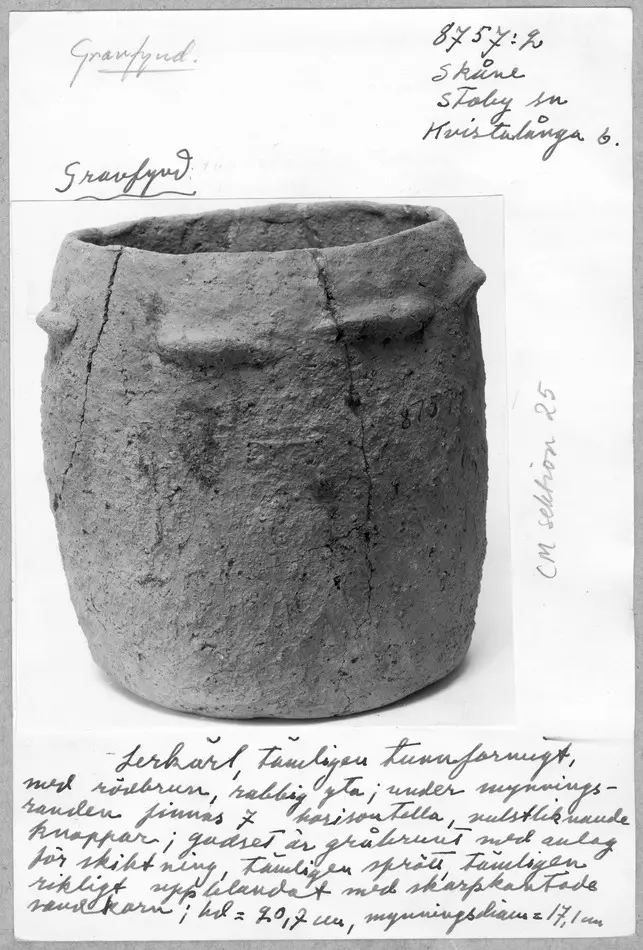 Gravfynd.
8757:2
Skåne
Stoby sn
Kvistalånga 6.
Gravfynd.
875
CM sektion 25
Lerkärl, tämligen tunnformigt,
med rödbrun, rabbig yta; under mynnings-
randen finnas 7 horisontella, valstliknande
knoppar; godset är gråbrunt med anlag
för skiktning, tämligen sprött, tämligen
rikligt uppblandat med skarpkantade
sandkorn; hd = 20,7 cm, mynningsdiam = 17,1 cm